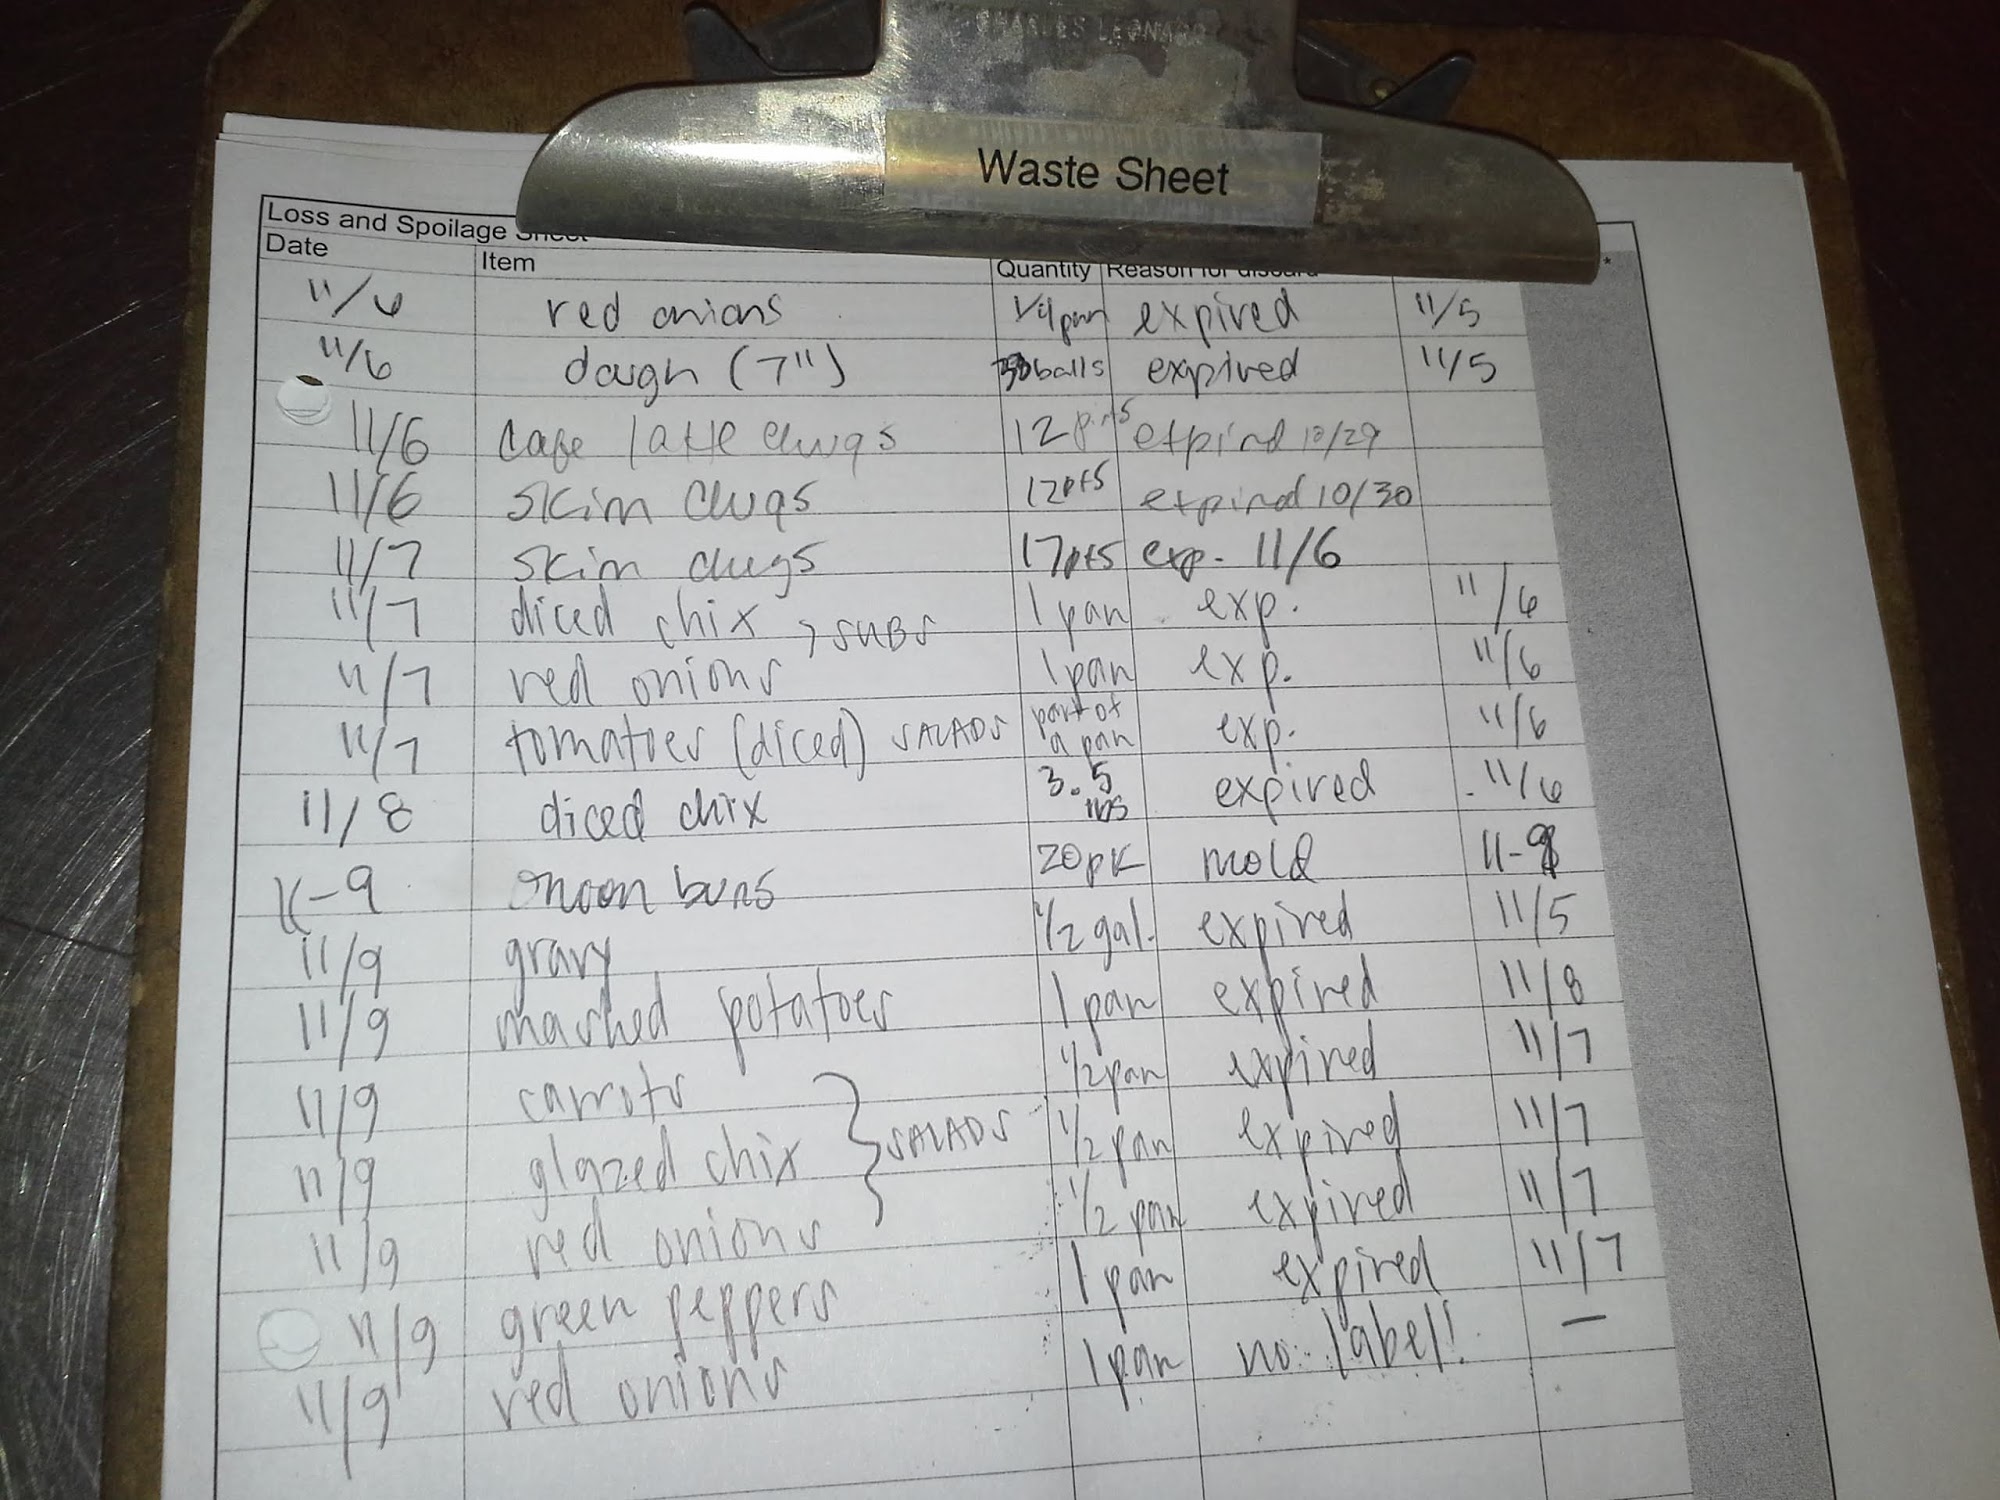 CHARLES LEONARD
Waste Sheet
Loss and Spoilage Sheet
Date Item Quantity Reason for discard *
11/6 red onions 1/4 pan expired 11/5
11/6 dough (7") balls expired 11/5
11/6 cafe latte chugs 12 pints expired 10/29
11/6 skim chugs 12pts expired 10/30
11/7 skim chugs 17pts exp. 11/6
11/7 diced chix 1 pan exp. 11/6
> SUBS
11/7 red onions 1 pan exp. 11/6
11/7 tomatoes (diced) SALADS part of a pan exp. 11/6
11/8 diced chix 3.5 lbs expired 11/6
11-9 onoon buns 20pk mold 11-9
11/9 gravy 1/2 gal. expired 11/5
11/9 mashed potatoes 1 pan expired 11/8
11/9 carrots 1/2 pan expired 11/7
11/9 glazed chix } SALADS 1/2 pan expired 11/7
11/9 red onions 1/2 pan expired 11/7
11/9 green peppers 1 pan expired 11/7
11/9 red onions 1 pan no label! —